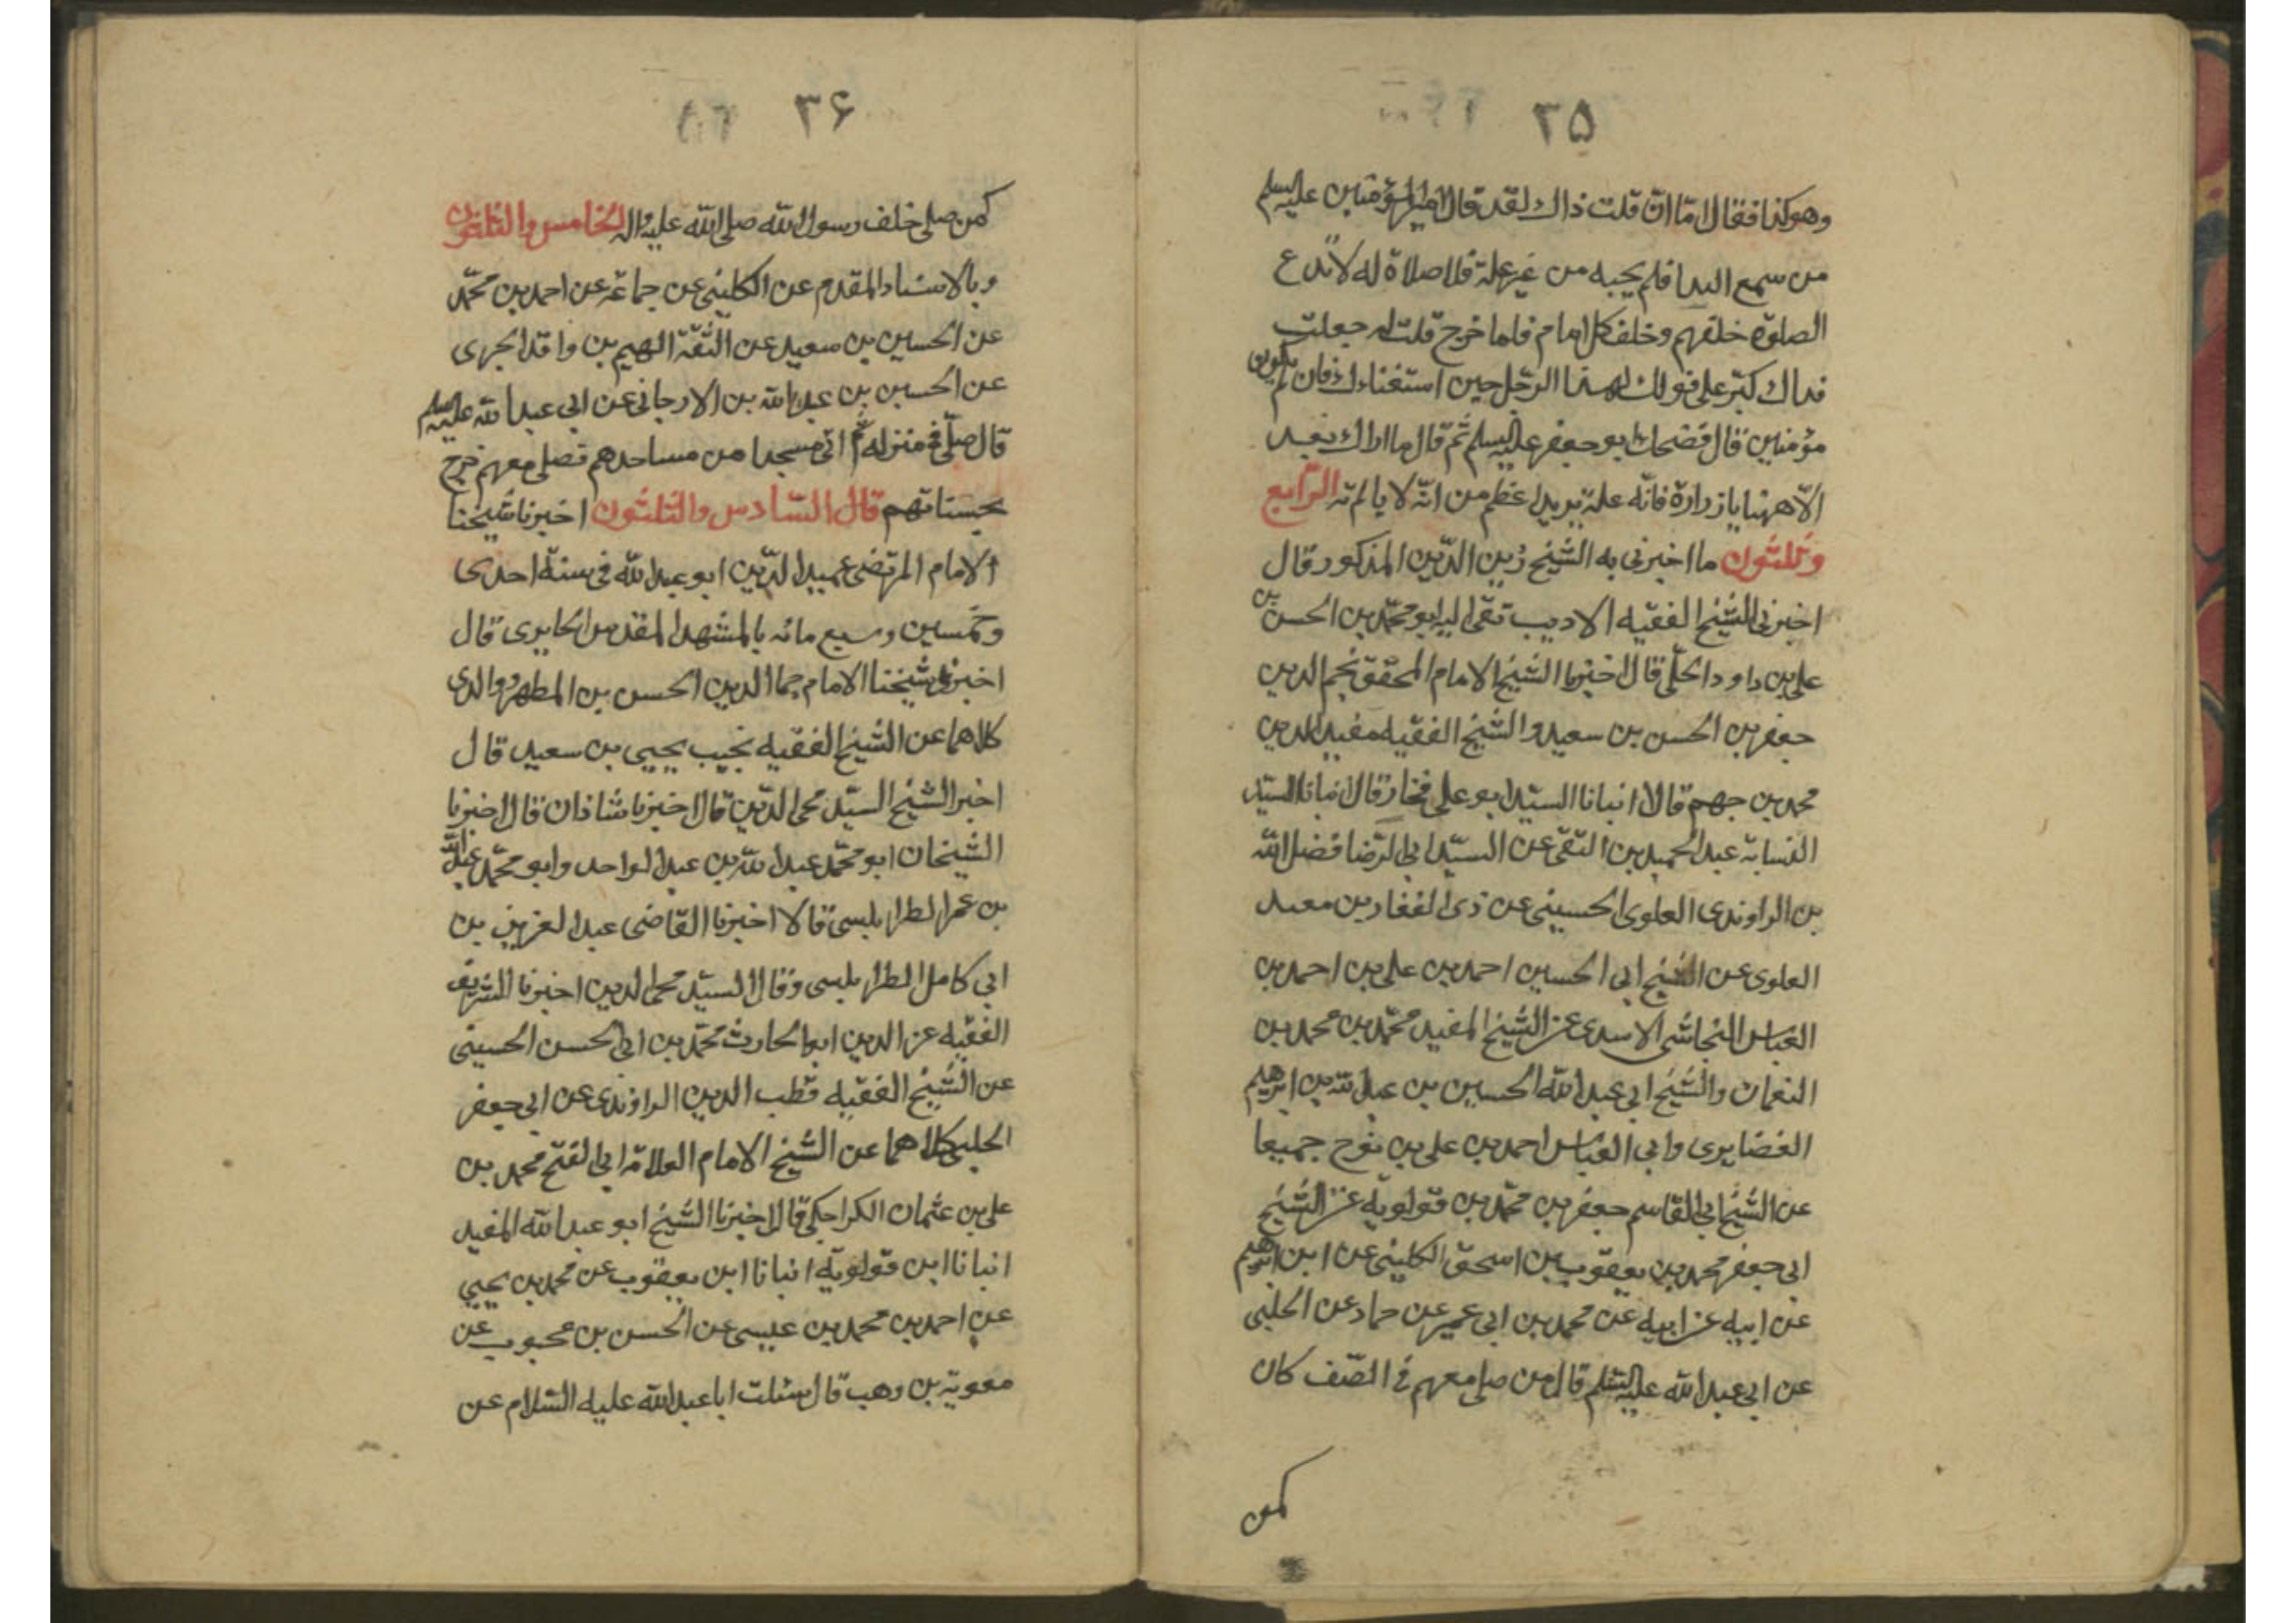 ۳۵
وهو كذا فقال اما ان قلت ذاك لقد قال امير المؤمنين عليه السلم
من سمع الندا فلم يجبه من غير علة فلا صلاة له لا تدع
الصلوة خلفهم وخلف كل امام فلما خرج قلت له جعلت
فداك كبر على قولك لهذا الرجل حين استفتاءك فان لم يكونوا
مؤمنين قال فضحك ابو جعفر عليه السلم ثم قال ما اراك بعد
الّا ههنا يا زرارة فانّه علة تريد اعظم من انّه لا ياتم به الرّابع
وثلثون ما اخبرنى به الشيخ زين الدّين المذكور قال
اخبرنى الشيخ الفقيه الاديب تقى الدين ابو محمّد بن الحسن بن
على بن داود الحلّى قال اخبرنا الشيخ الامام المحقق نجم الدين
جعفر بن الحسن بن سعيد والشيخ الفقيه مفيد الدين
محمد بن جهم قالا انبانا السيّد ابو على فخار قال انبانا السيّد
النسابة عبد الحميد بن التقى عن السيّد ابى الرّضا فضل الله
بن الراوندى العلوى الحسينى عن ذى الفقار بن معبد
العلوى عن الشيخ ابى الحسين احمد بن على بن احمد بن
العباس النجاشى الاسدى عن الشيخ المفيد محمّد بن محمد بن
النعمان والشيخ ابى عبد الله الحسين بن عبد الله بن ابرهيم
الغضايرى وابى العباس احمد بن على بن نوح جميعا
عن الشيخ ابى القاسم جعفر بن محمّد بن قولويه عن الشيخ
ابى جعفر محمد بن يعقوب بن اسحق الكلينى عن ابن ابرهيم
عن ابيه عن ابيه عن محمد بن ابى عمير عن حماد عن الحلبى
عن ابى عبد الله عليه السّلم قال من صلى معهم فى الصّف كان
كمن
۳۶
كمن صلى خلف رسول الله صلى الله عليه واله الخامس والثلثون
وبالاسناد المقدم عن الكلينى عن جماعة عن احمد بن محمّد
عن الحسين بن سعيد عن الثقة الهيم بن واقد الجرى
عن الحسين بن عبد الله بن الارجانى عن ابى عبد الله عليه السلم
قال من صلّى فى منزله ثم اتى مسجدا من مساجدهم فصلى معهم خرج
بحسناتهم قال السّادس والثلثون اخبرنا شيخنا
الامام المرتضى عميد الدّين ابو عبد الله فى سنة احدى
وخمسين وسبع مائه بالمشهد المقدس الحايرى قال
اخبرنا شيخنا الامام جمال الدين الحسن بن المطهر ووالدى
كلاهما عن الشيخ الفقيه نجيب يحيى بن سعيد قال
اخبر الشيخ السيّد محى الدّين قال اخبرنا شاذان قال اخبرنا
الشيخان ابو محمّد عبد الله بن عبد الواحد وابو محمّد عبد الله
بن عمر الطرابلسى قالا اخبرنا القاضى عبد العزيز بن
ابى كامل الطرابلسى وقال السيّد محى الدين اخبرنا الشريف
الفقيه عز الدين ابو الحارث محمّد بن ابى الحسن الحسينى
عن الشيخ الفقيه قطب الدين الراوندى عن ابى جعفر
الحلبى كلاهما عن الشيخ الامام العلامة ابى الفتح محمد بن
على بن عثمان الكراجكى قال اخبرنا الشيخ ابو عبد الله المفيد
انبانا ابن قولويه انبانا ابن يعقوب عن محمد بن يحيى
عن احمد بن محمد بن عيسى عن الحسن بن محبوب عن
معوية بن وهب قال سئلت ابا عبد الله عليه السّلام عن